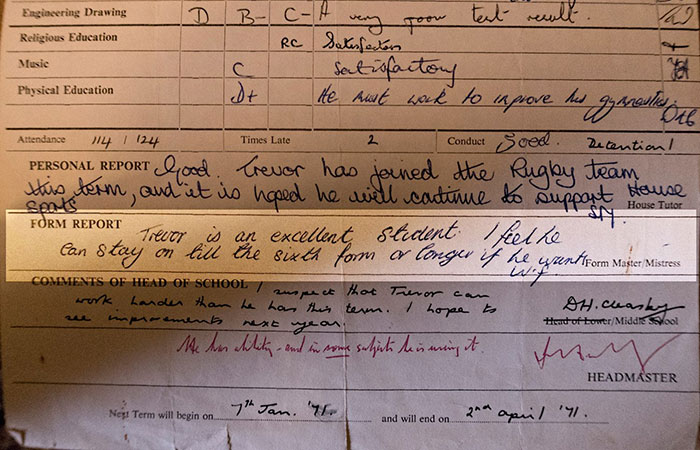 Engineering Drawing D B- C- A very poor test result.
Religious Education RC Satisfactory
Music C Satisfactory
Physical Education D+ He must work to improve his gymnastics.
Attendance 114 / 124 Times Late 2 Conduct Good. Detention 1
PERSONAL REPORT Good. Trevor has joined the Rugby team
this term, and it is hoped he will continue to support House
Sports House Tutor
FORM REPORT Trevor is an excellent student. I feel he
can stay on till the sixth form or longer if he wants
Form Master/Mistress
COMMENTS OF HEAD OF SCHOOL I suspect that Trevor can
work harder than he has this term. I hope to
see improvements next year.
Head of Lower/Middle School
He has ability - and in some subjects he is using it.
HEADMASTER
Next Term will begin on 7th Jan. '71. and will end on 2nd April '71.